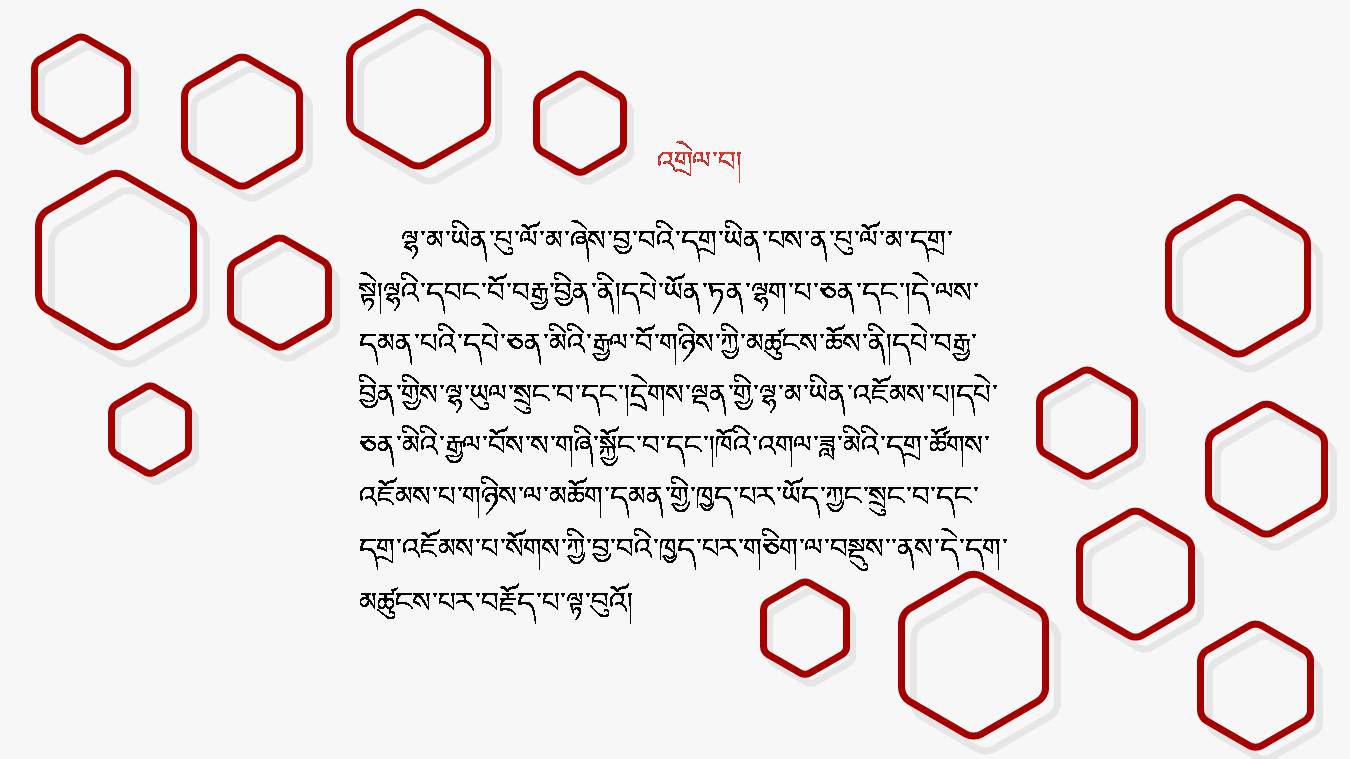 འགྲེལ་བ།
ལྷ་མ་ཡིན་པུ་ལོ་མ་ཞེས་བྱ་བའི་དགྲ་ཡིན་པས་ན་པུ་ལོ་མ་དགྲ་
སྟེ།ལྷའི་དབང་པོ་བརྒྱ་བྱིན་ནི།དཔེ་ཡོན་ཏན་ལྷག་པ་ཅན་དང་།དེ་ལས་
དམན་པའི་དཔེ་ཅན་མིའི་རྒྱལ་པོ་གཉིས་ཀྱི་མཚུངས་ཆོས་ནི།དཔེ་བརྒྱ་
བྱིན་གྱིས་ལྷ་ཡུལ་སྲུང་བ་དང་།དྲེགས་ལྡན་གྱི་ལྷ་མ་ཡིན་འཇོམས་པ།དཔེ་
ཅན་མིའི་རྒྱལ་པོས་ས་གཞི་སྐྱོང་བ་དང་།ཁོའི་འགལ་ཟླ་མིའི་དགྲ་ཚོགས་
འཇོམས་པ་གཉིས་ལ་མཆོག་དམན་གྱི་ཁྱད་པར་ཡོད་ཀྱང་སྲུང་བ་དང་
དགྲ་འཇོམས་པ་སོགས་ཀྱི་བྱ་བའི་ཁྱད་པར་གཅིག་ལ་བསྡུས་་ནས་དེ་དག་
མཚུངས་པར་བརྗོད་པ་ལྟ་བུའོ།